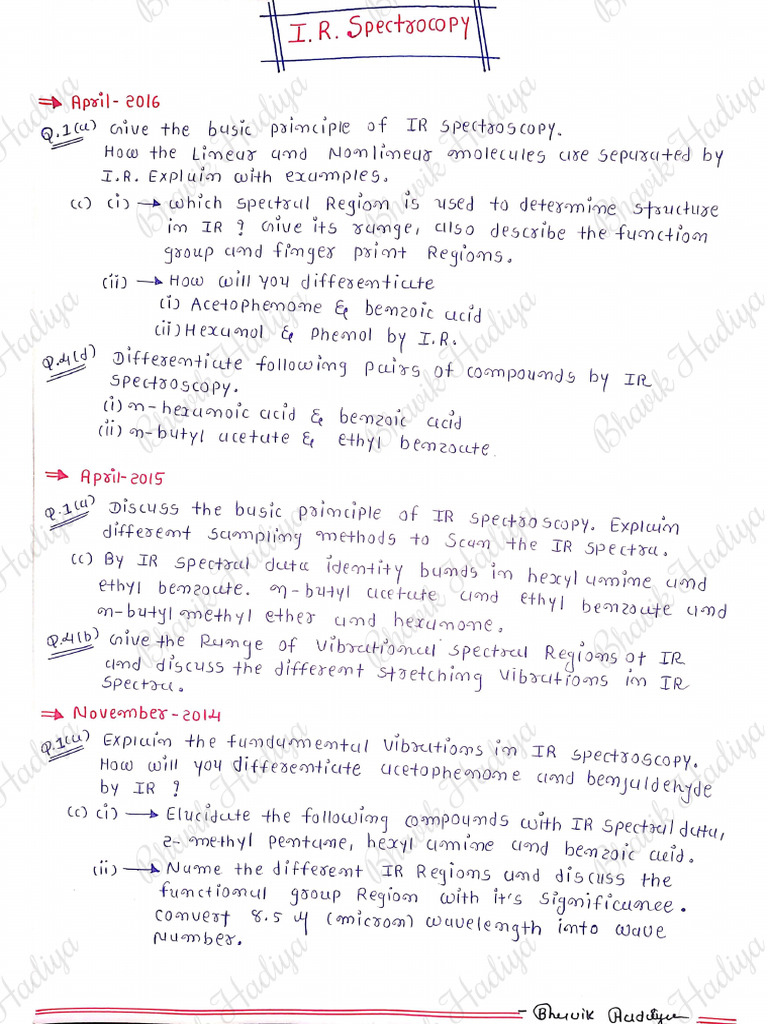 I.R. Spectrocopy
⇒ April-2016
Q.1(a) Give the basic principle of IR spectroscopy.
How the Linear and Nonlinear molecules are separated by
I.R. Explain with examples.
(c) (i) → which spectral Region is used to determine structure
in IR ? Give its range, also describe the function
group and finger print Regions.
(ii) → How will you differentiate
(i) Acetophenone & benzoic acid
(ii) Hexanol & Phenol by I.R.
Q.4(d) Differentiate following pairs of compounds by IR
spectroscopy.
(i) n-hexanoic acid & benzoic acid
(ii) n-butyl acetate & ethyl benzoate
⇒ April-2015
Q.1(a) Discuss the basic principle of IR spectroscopy. Explain
different sampling methods to scan the IR spectra.
(c) By IR spectral data identity bands in hexyl amine and
ethyl benzoate. n-butyl acetate and ethyl benzoate and
n-butyl methyl ether and hexanone.
Q.4(b) Give the Range of vibrational spectral Regions of IR
and discuss the different stretching vibrations in IR
spectra.
⇒ November-2014
Q.1(a) Explain the fundamental vibrations in IR spectroscopy.
How will you differentiate acetophenone and benjaldehyde
by IR ?
(c) (i) → Elucidate the following compounds with IR spectral data,
2-methyl pentane, hexyl amine and benzoic acid.
(ii) → Name the different IR Regions and discuss the
functional group Region with it's significance.
convert 8.5 μ (micron) wavelength into wave
number.
- Bhavik Hadiya